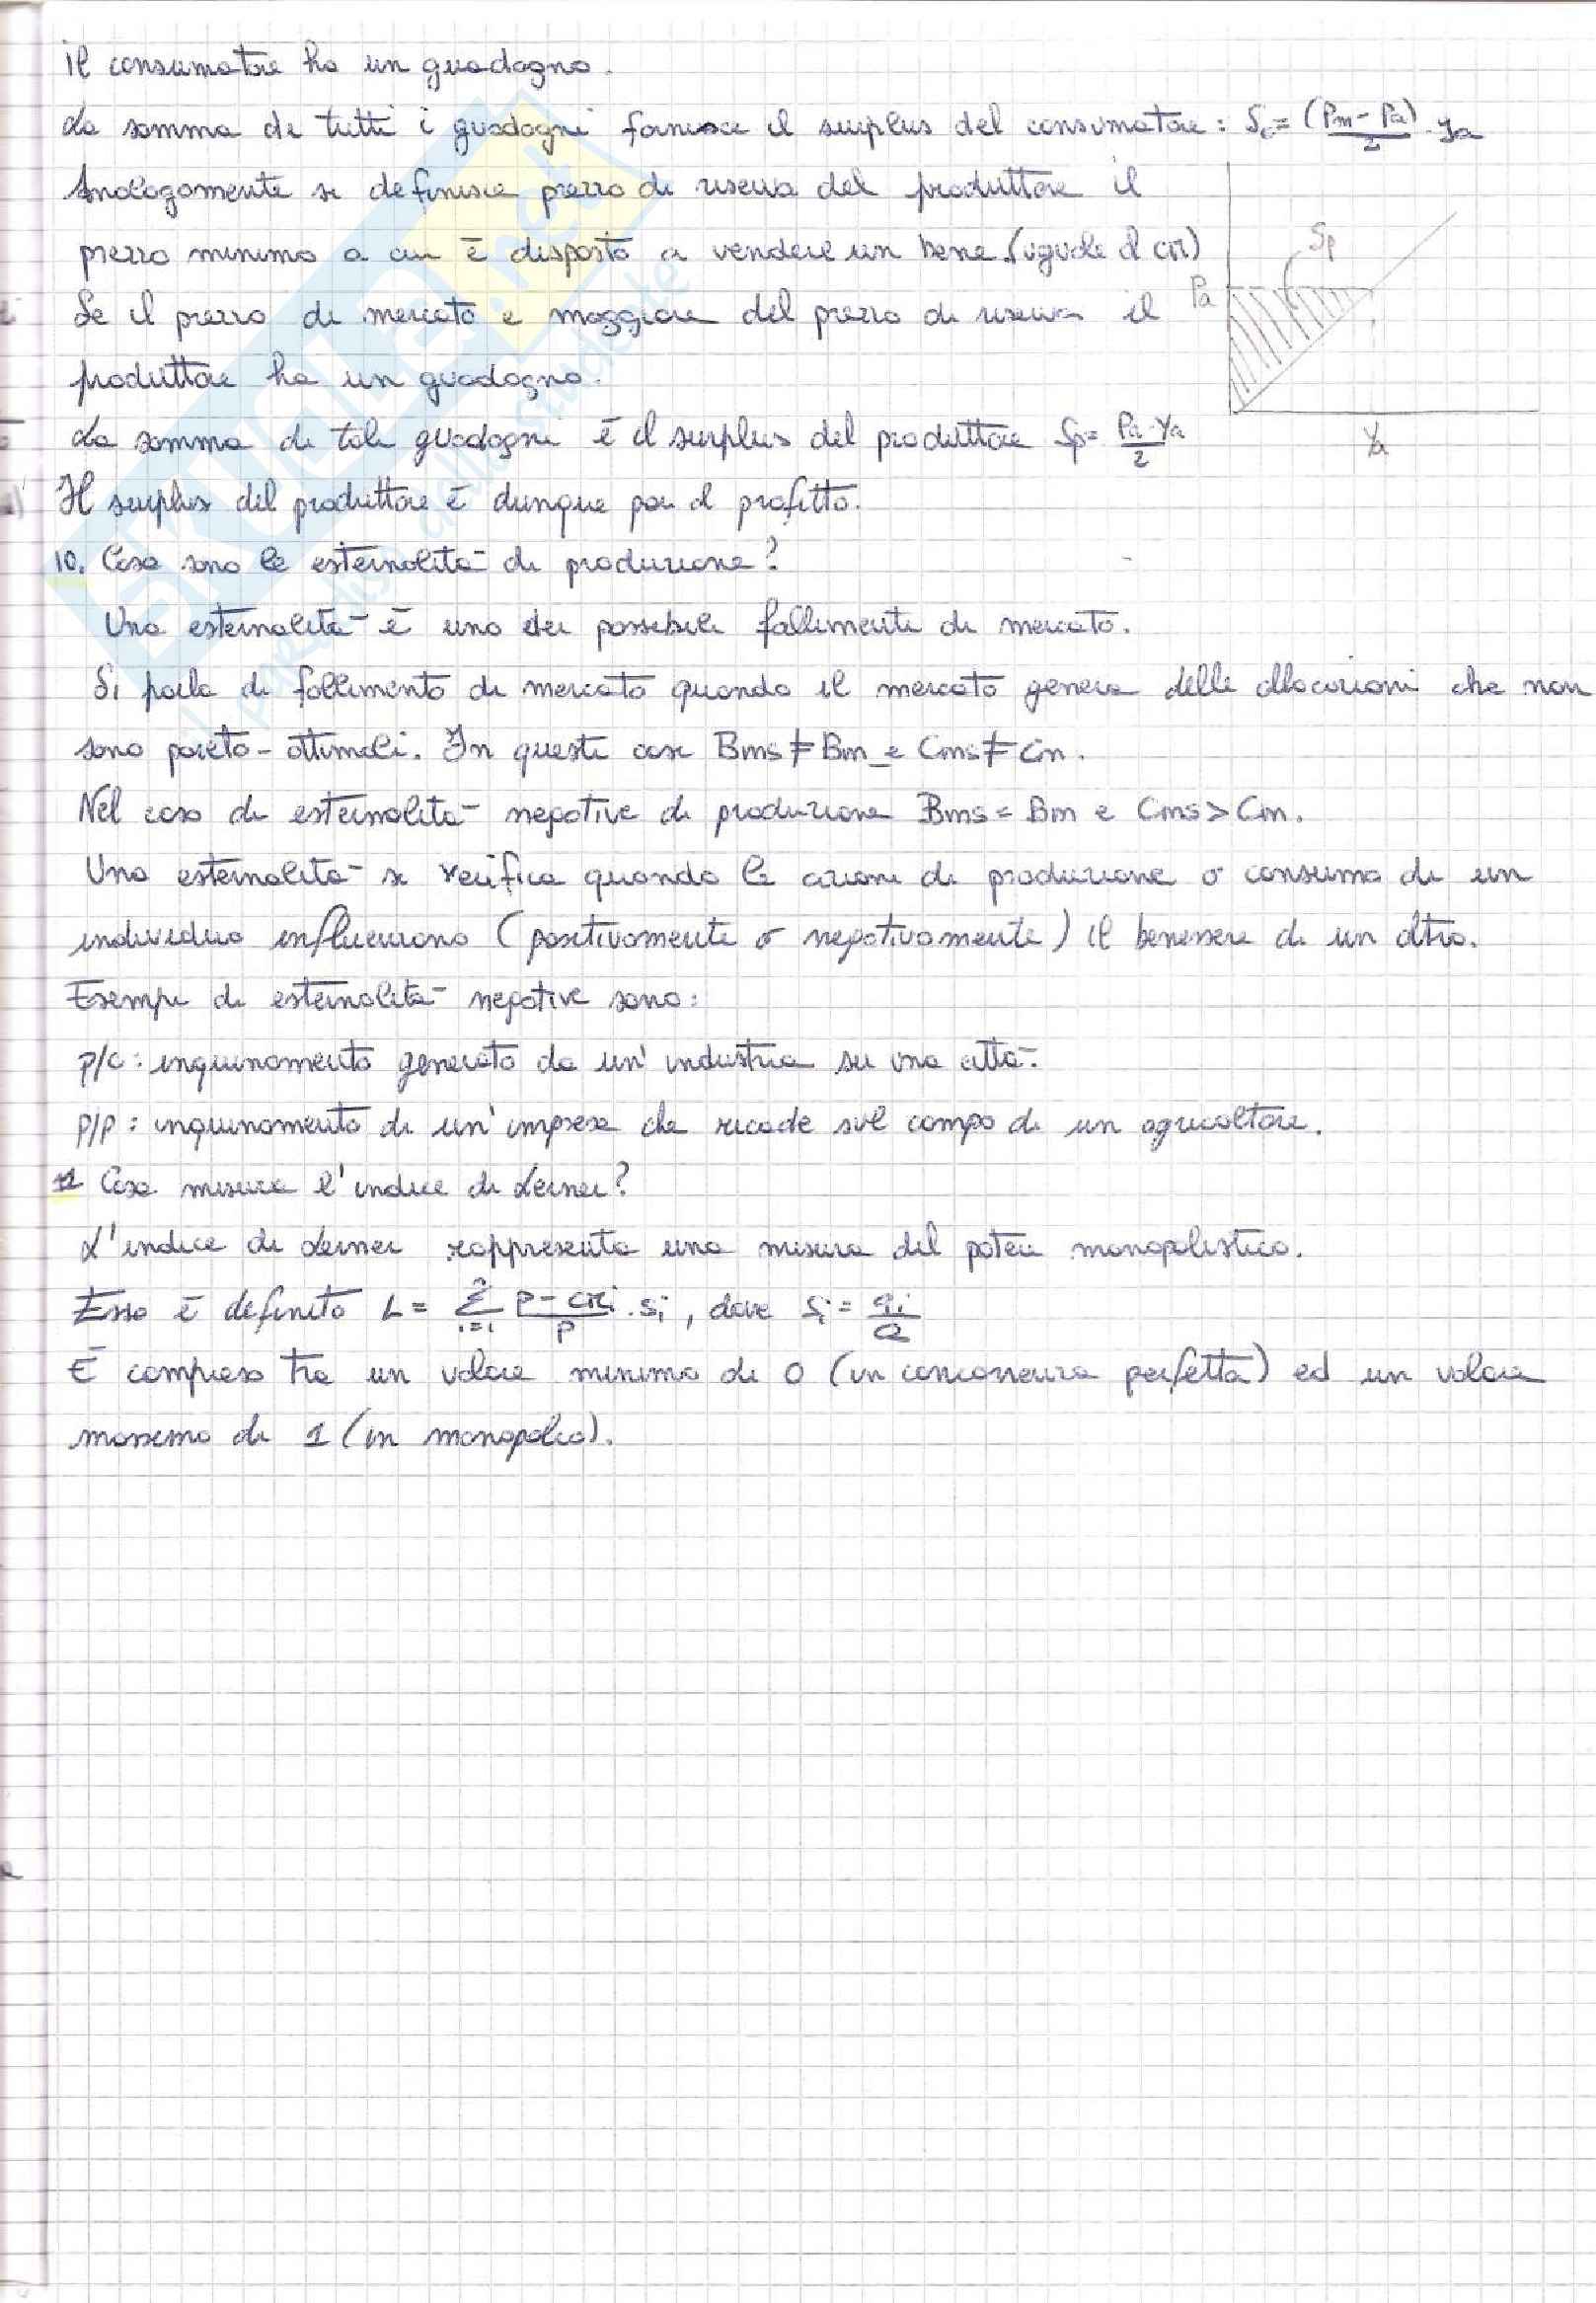 il consumatore ha un guadagno.
La somma di tutti i guadagni fornisce il surplus del consumatore: Sc = (Pm - Pa)/2 · ya
Analogamente si definisce prezzo di riserva del produttore il
prezzo minimo a cui è disposto a vendere un bene. (uguale al CM)
Se il prezzo di mercato è maggiore del prezzo di riserva il
produttore ha un guadagno.
La somma di tali guadagni è il surplus del produttore Sp = Pa · Ya / 2
Sp
Pa
Ya
Il surplus del produttore è dunque pari al profitto.
10. Cosa sono le esternalità di produzione?
Una esternalità è uno dei possibili fallimenti di mercato.
Si parla di fallimento di mercato quando il mercato genera delle allocazioni che non
sono pareto-ottimali. In questi casi Bms ≠ Bm e Cms ≠ Cm.
Nel caso di esternalità negative di produzione Bms = Bm e Cms > Cm.
Una esternalità si verifica quando le azioni di produzione o consumo di un
individuo influenzano (positivamente o negativamente) il benessere di un altro.
Esempi di esternalità negative sono:
p/c: inquinamento generato da un'industria su una città.
p/p: inquinamento di un'impresa che ricade sul campo di un agricoltore.
Cosa misura l'indice di Lerner?
L'indice di Lerner rappresenta una misura del poter monopolistico.
Esso è definito L = Σ i=1 n (P - CMi)/P · Si, dove Si = qi/Q
È compreso tra un valore minimo di 0 (in concorrenza perfetta) ed un valore
massimo di 1 (in monopolio).